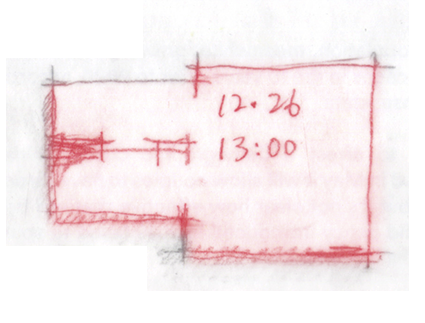 12.26
13:00